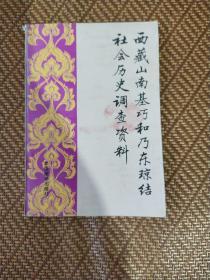 西藏山南基巧和乃东琼结
社会历史调查资料